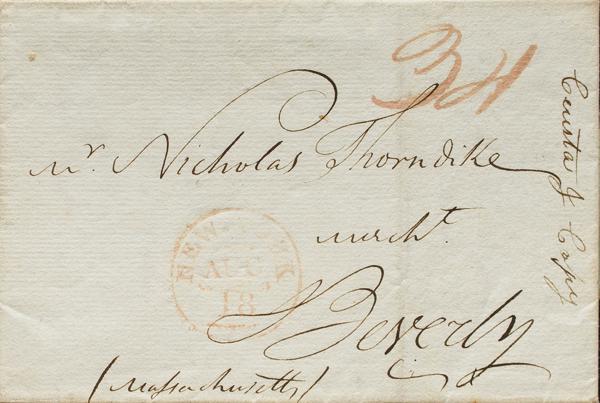 34
Mr. Nicholas Thorndike
mercht.
Beverly
(Massachusetts)
NEW-YORK
AUG
18